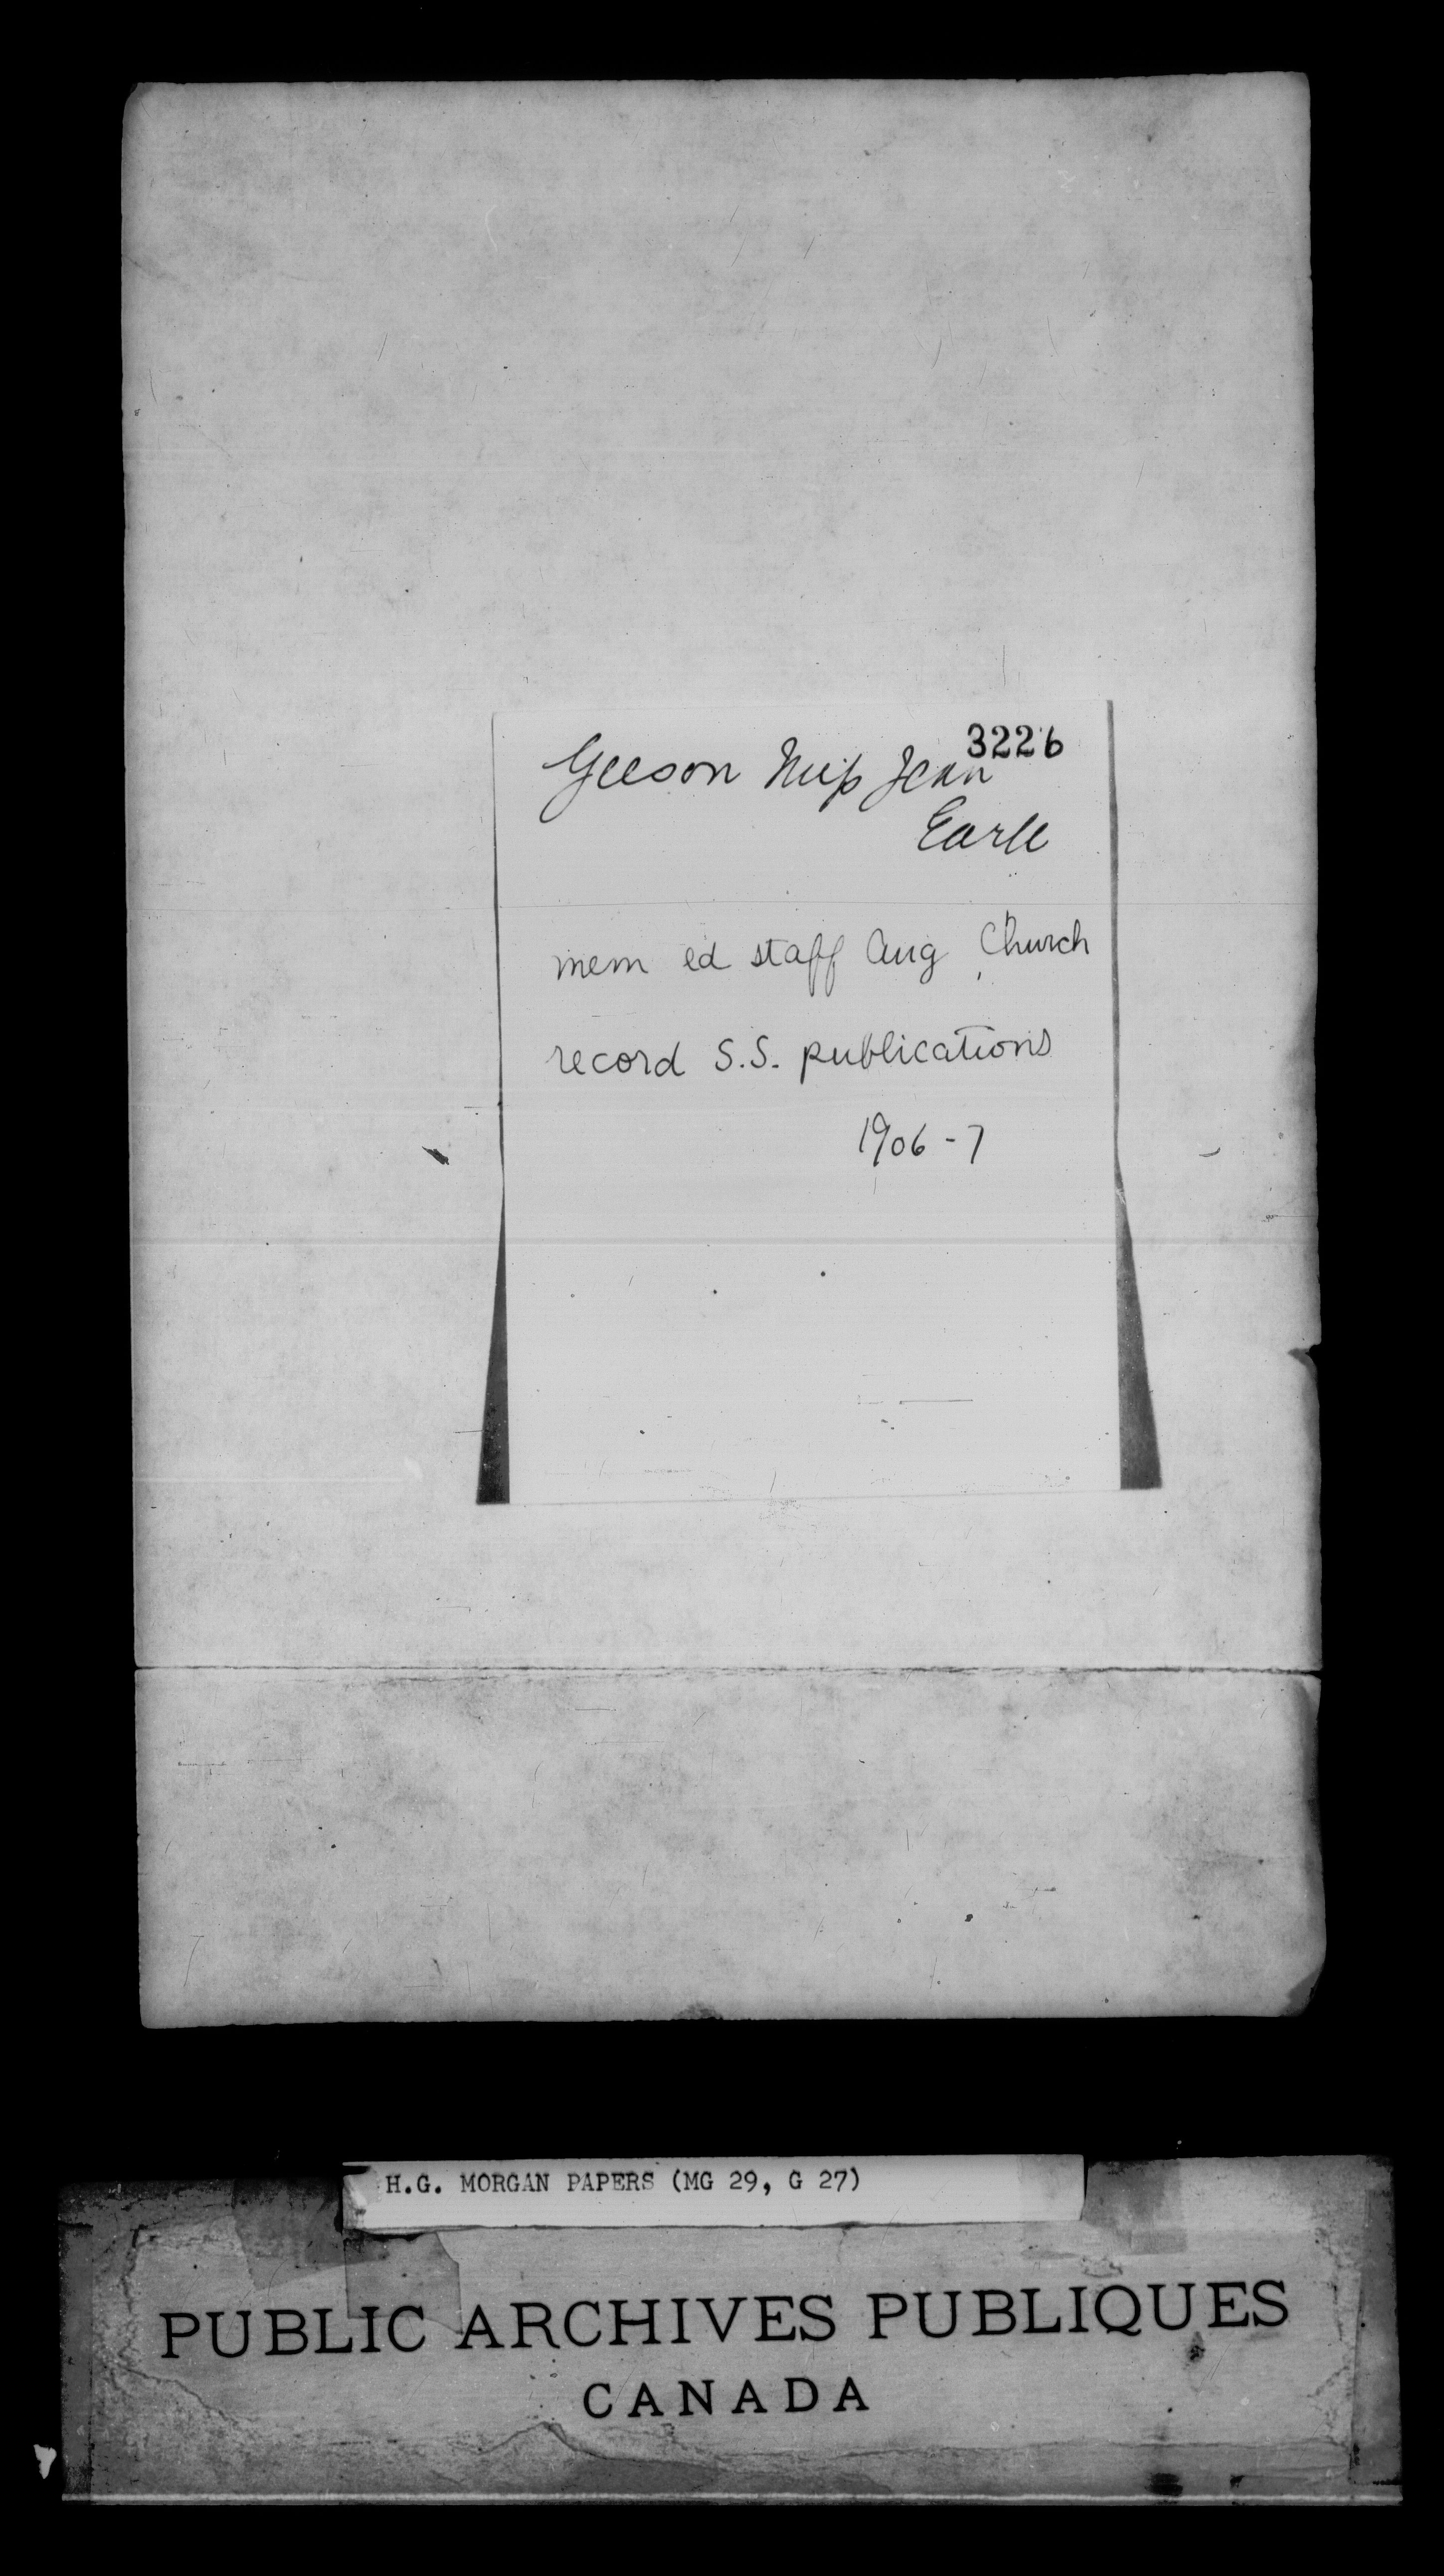 3226
Geeson Miss Jean
Earle
mem ed staff Aug Church
record S.S. publications
1906-7
H.G. MORGAN PAPERS (MG 29, G 27)
PUBLIC ARCHIVES PUBLIQUES
CANADA